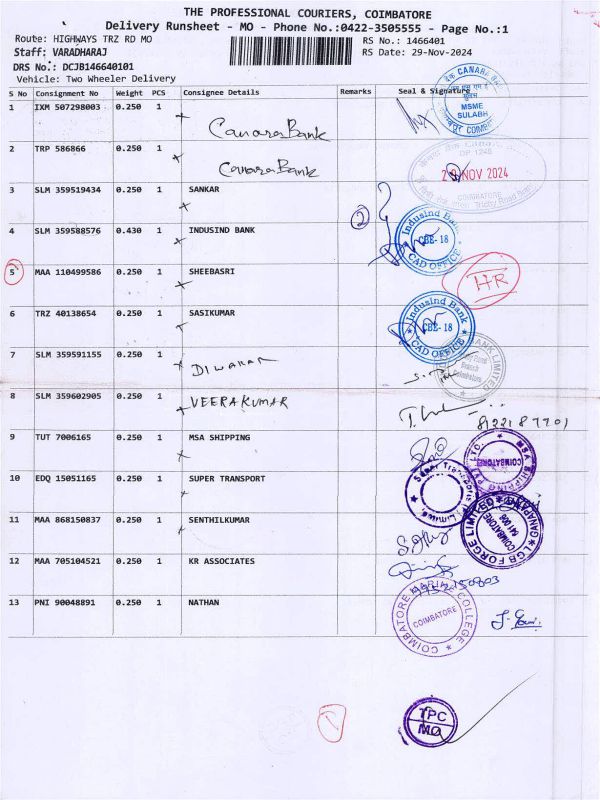 THE PROFESSIONAL COURIERS, COIMBATORE
Delivery Runsheet - MO - Phone No.:0422-3505555 - Page No.:1
Route: HIGHWAYS TRZ RD MO
RS No.: 1466401
Staff: VARADHARAJ
RS Date: 29-Nov-2024
DRS No.: DCJB146640101
Vehicle: Two Wheeler Delivery
S No Consignment No Weight PCS Consignee Details Remarks Seal & Signature
1 IXM 507298003 0.250 1 Canara Bank
MSME
SULABH
2 TRP 586866 0.250 1 Canara Bank
NOV 2024
COIMBATORE
3 SLM 359519434 0.250 1 SANKAR
2
4 SLM 359588576 0.430 1 INDUSIND BANK
IndusInd Bank
CBE-18
CAD OFFICE
5 MAA 110499586 0.250 1 SHEEBASRI
HR
6 TRZ 40138654 0.250 1 SASIKUMAR
IndusInd Bank
CBE-18
CAD OFFICE
7 SLM 359591155 0.250 1 DIWAKAR
8 SLM 359602905 0.250 1 VEERAKUMAR
9 TUT 7006165 0.250 1 MSA SHIPPING
MSA SHIPPING PVT LTD.
COIMBATORE
10 EDQ 15051165 0.250 1 SUPER TRANSPORT
11 MAA 868150837 0.250 1 SENTHILKUMAR
LGB FORGE LIMITED
COIMBATORE
641 006
12 MAA 705104521 0.250 1 KR ASSOCIATES
13 PNI 90048891 0.250 1 NATHAN
COIMBATORE MARINE COLLEGE
COIMBATORE
TPC
MO